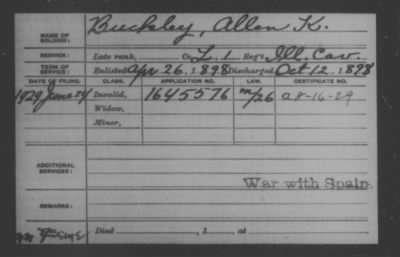 NAME OF SOLDIER: Buckley, Allen K.
SERVICE: Late rank, Co. L. 1 Reg't Ill. Cav.
TERM OF SERVICE: Enlisted Apr 26, 1898 Discharged Oct 12, 1898
DATE OF FILING. CLASS. APPLICATION NO. LAW. CERTIFICATE NO.
1929 June 24 Invalid, 1645576 m/26 a8-16-29
Widow,
Minor,
ADDITIONAL SERVICES:
War with Spain.
REMARKS:
Died , 1 , at